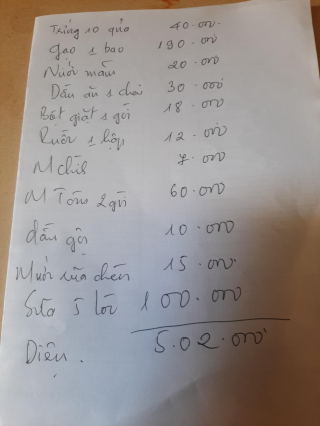 Trứng 10 quả 40.000
gạo 1 bao 190.000
Nước mắm 20.000
Dầu ăn 1 chai 30.000
Bột giặt 1 gói 18.000
Ruốc 1 hộp 12.000
M chil 7.000
M Tôm 2 gói 60.000
dầu gội 10.000
Nước rửa chén 15.000
Sữa 5 lốc 100.000
5.02.000
Diệu.